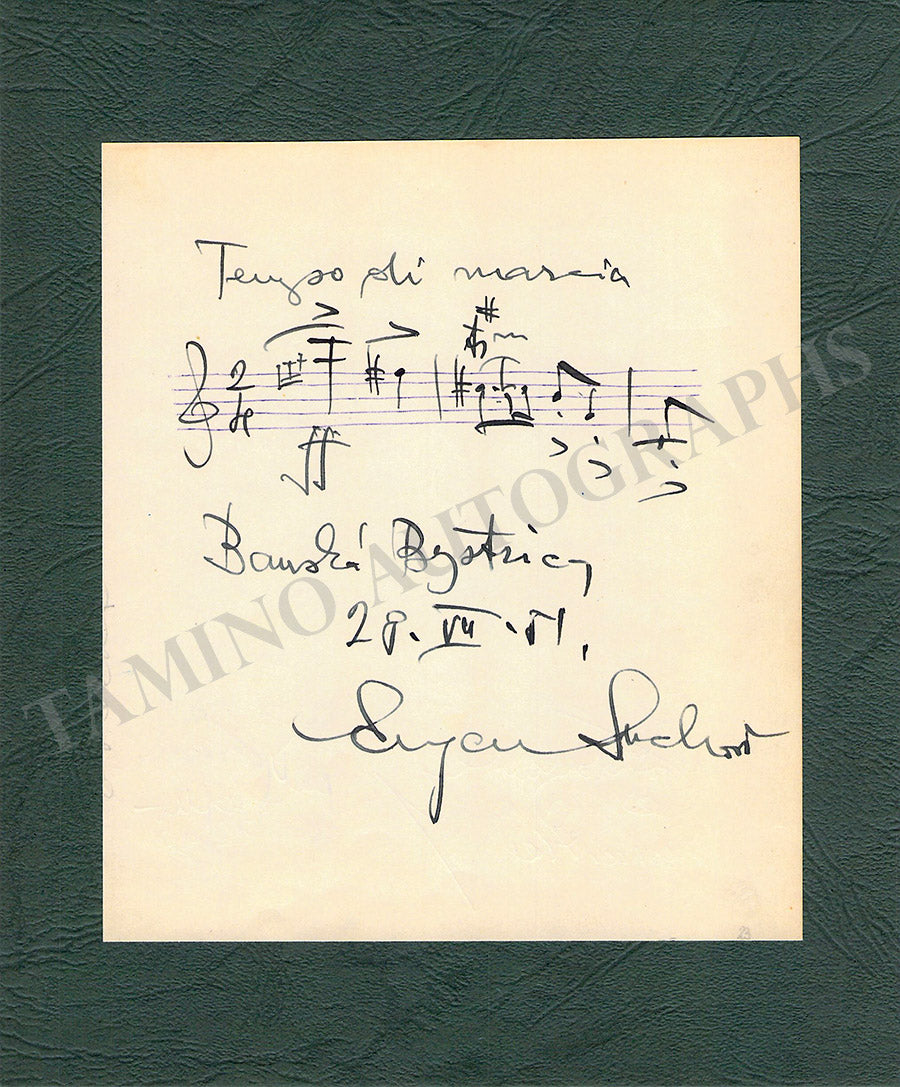 Tempo di marcia
2
4
ff
Banská Bystrica
28. VII. 51.
Eugen Suchoň
TAMINO AUTOGRAPHS